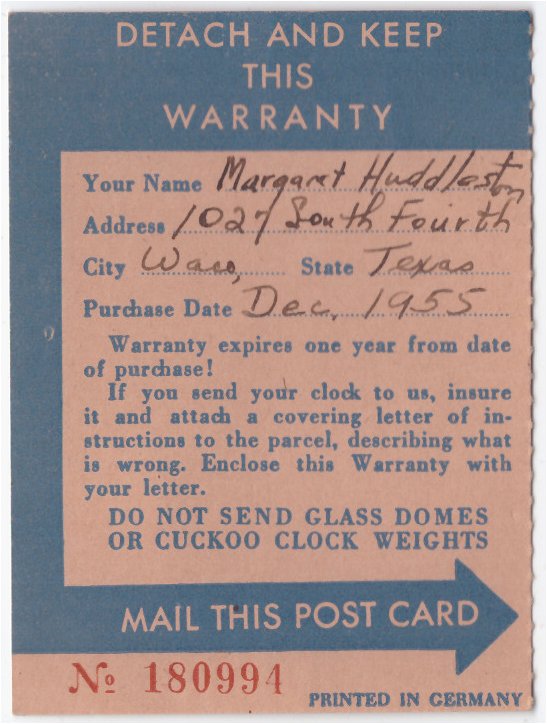 DETACH AND KEEP
THIS
WARRANTY
Your Name Margaret Huddleston
Address 1027 South Fourth
City Waco, State Texas
Purchase Date Dec, 1955
Warranty expires one year from date
of purchase!
If you send your clock to us, insure
it and attach a covering letter of in-
structions to the parcel, describing what
is wrong. Enclose this Warranty with
your letter.
DO NOT SEND GLASS DOMES
OR CUCKOO CLOCK WEIGHTS
MAIL THIS POST CARD
№ 180994
PRINTED IN GERMANY